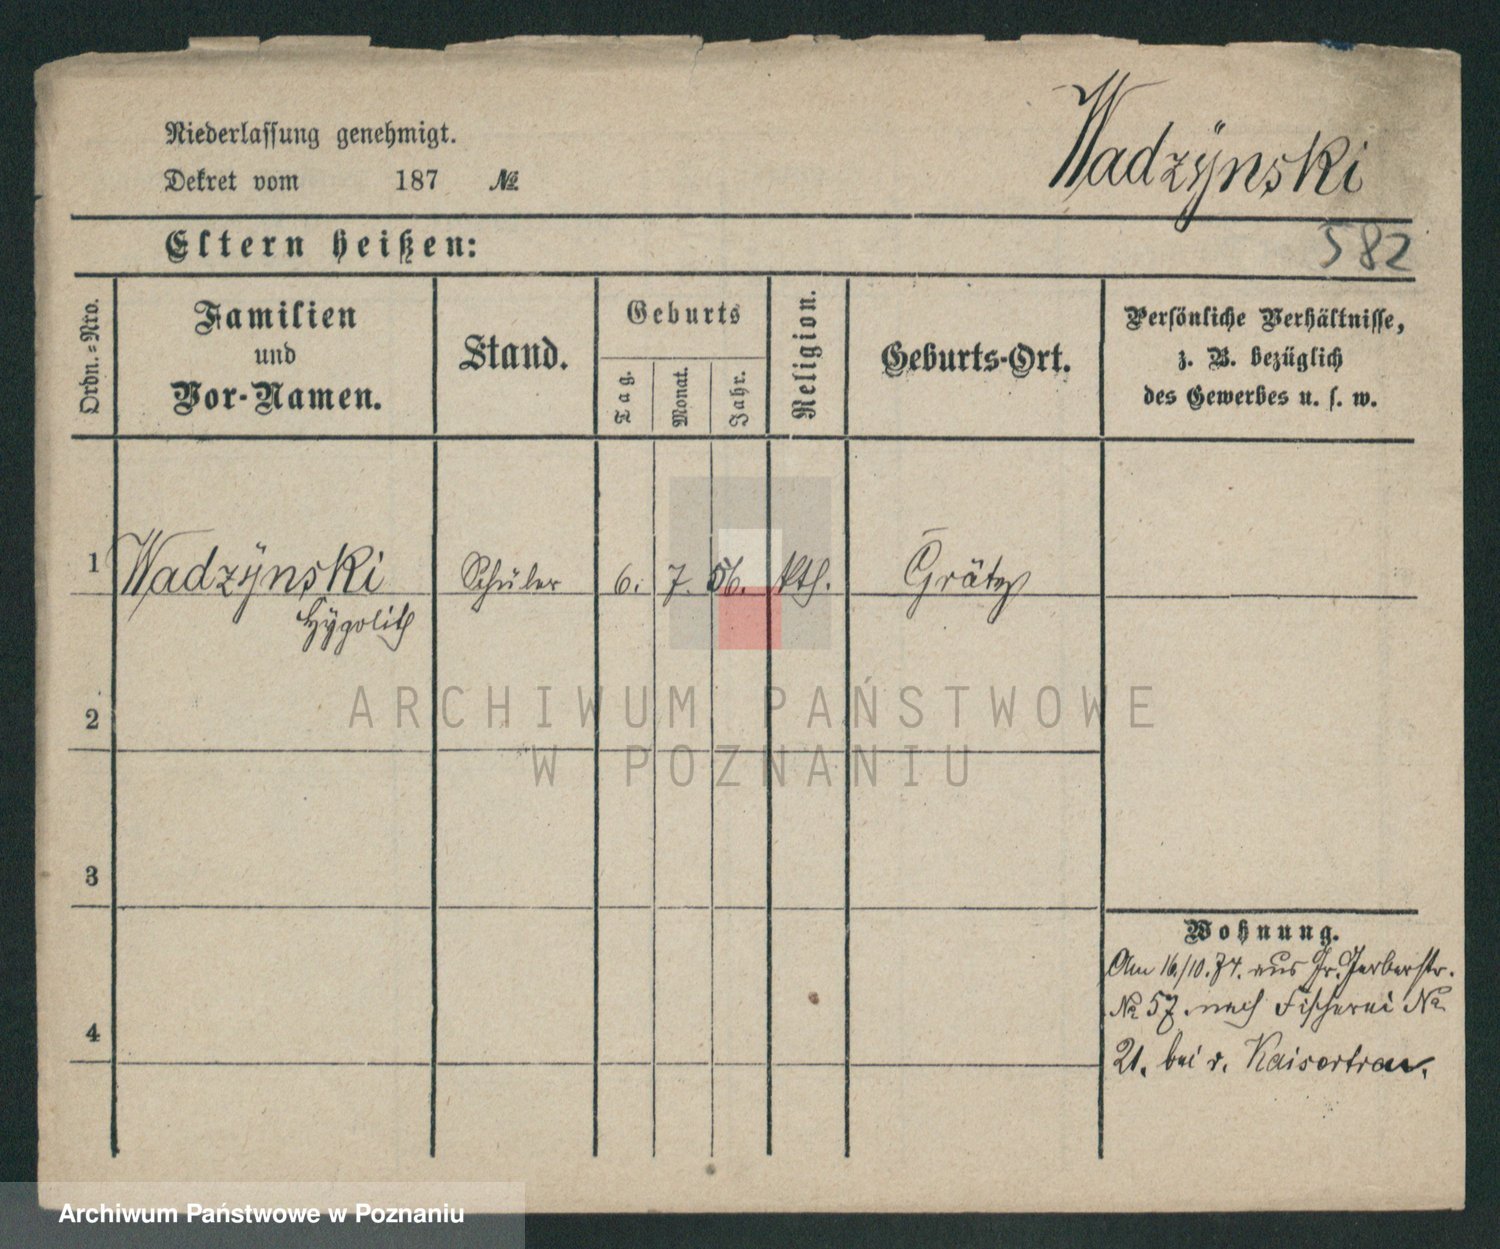 Wadzÿnski
Niederlassung genehmigt.
Dekret vom 187 №
Eltern heißen:
582
Ordn.=Nro.
Familien
und
Vor-Namen.
Stand.
Geburts
Tag.
Monat.
Jahr.
Religion.
Geburts-Ort.
Persönliche Verhältnisse,
z. B. bezüglich
des Gewerbes u. s. w.
1 Wadzÿnski Schüler 6. 7. 56. kth. Grätz
Hÿpolith
2
3
4
Wohnung.
Am 16/10. 74. aus Gr. Gerberstr.
№ 57 nach Fischerei №
21. bei v.
ARCHIWUM PAŃSTWOWE
W POZNANIU
Archiwum Państwowe w Poznaniu